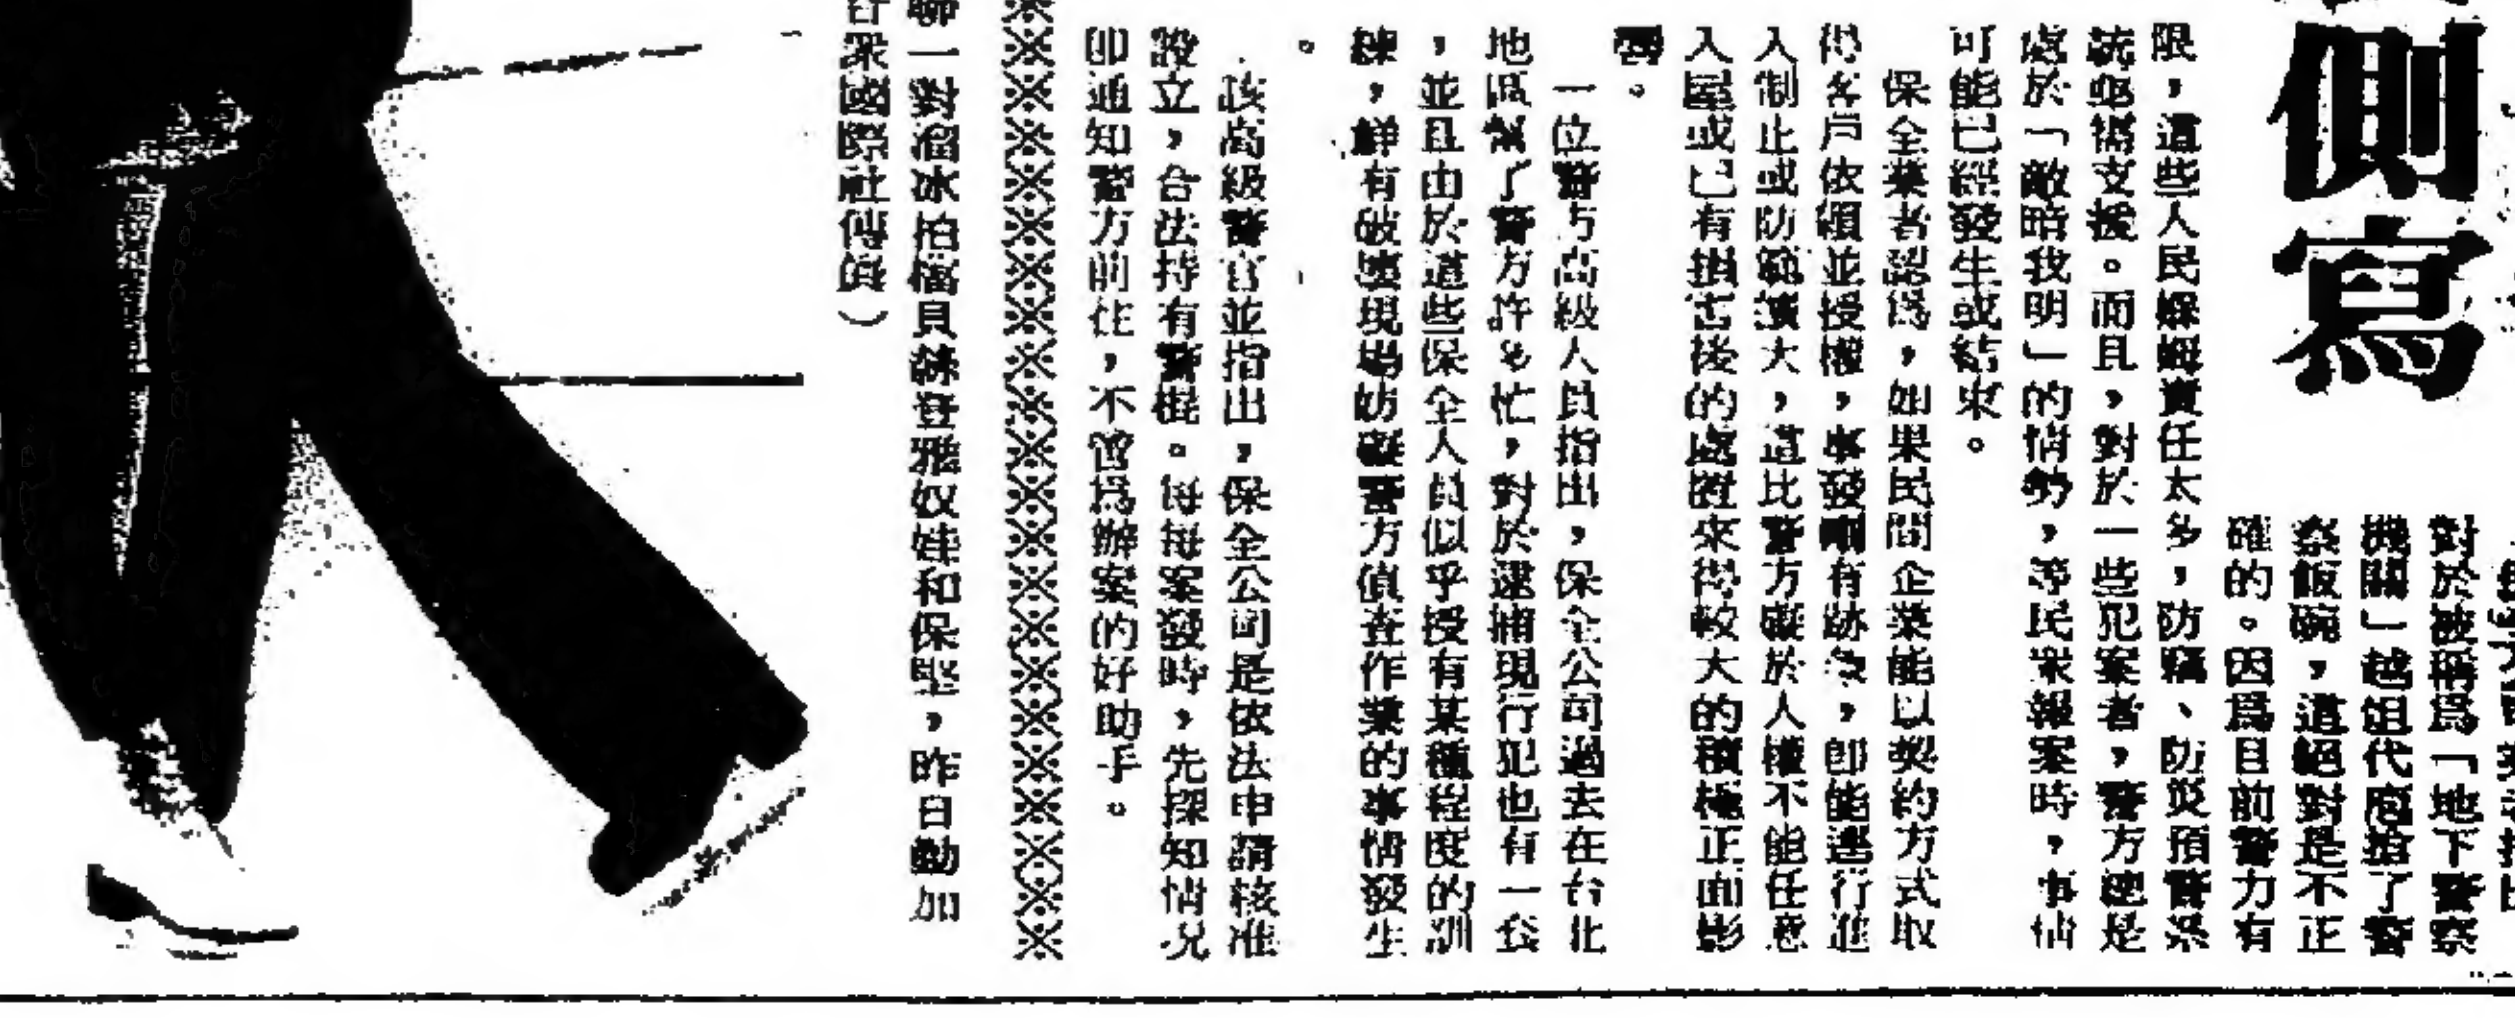 側寫
對於被稱爲「地下警察
機關」越俎代庖搶了警
察飯碗，這絕對是不正
確的。因爲目前警力有
限，這些人民褓姆責任太多，防竊、防災預警系
統亟需支援。而且，對於一些犯案者，警方總是
處於「敵暗我明」的情勢，等民衆報案時，事情
可能已經發生或結束。
保全業者認爲，如果民間企業能以契約方式取
得客戶依賴並授權，事發剛有跡象，卽能進行進
入制止或防範擴大，這比警方礙於人權不能任意
入屋或已有損害後的處置來得較大的積極正面影
響。
一位警方高級人員指出，保全公司過去在台北
地區幫了警方許多忙，對於逮捕現行犯也有一套
，並且由於這些保全人員似乎授有某種程度的訓
練，鮮有破壞現場妨礙警方偵查作業的事情發生
。
該高級警官並指出，保全公司是依法申請核准
設立，合法持有警棍。每每案發時，先探知情況
卽通知警方前往，不啻爲辦案的好助手。
聯一對溜冰拍檔貝絲登雅奴娃和保堅，昨日勤加
合衆國際社傳眞）